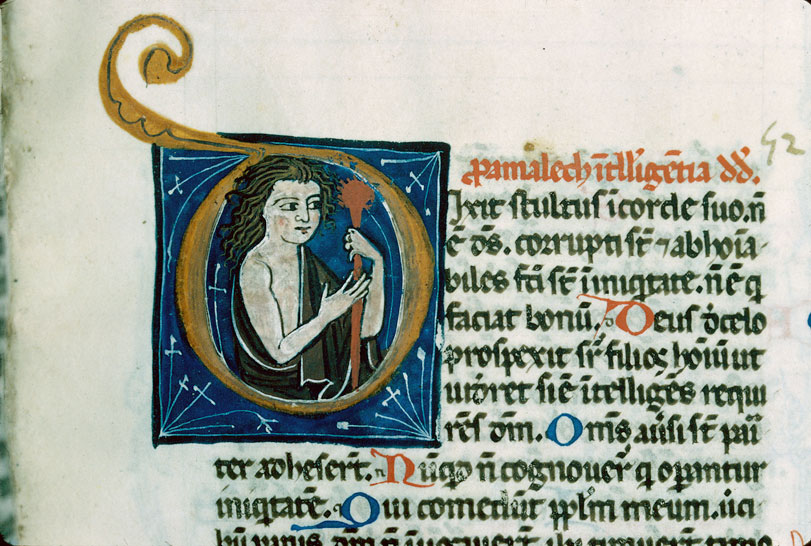 ꝓamalech ītelligētia dd̄. 52
Dixit stultus ī corde suo. n̄
ē ds̄. corrupti st̄ ⁊ abhoīa
biles fcī st̄ ī iniq̄tate. n̄ ē q
faciat bonū. Deus d̄ celo
prospexit sr̄ filioꝝ hoīum ut
uid̄ret si ē ītelligēs requi
rēs dm̄. Om̄s au̾si st̄ pari
ter adheser̄t. Nūq̄d n̄ cognouer̄ q opantur
iniq̄tatē. Qui comedūt ppl̄m meum. ūci